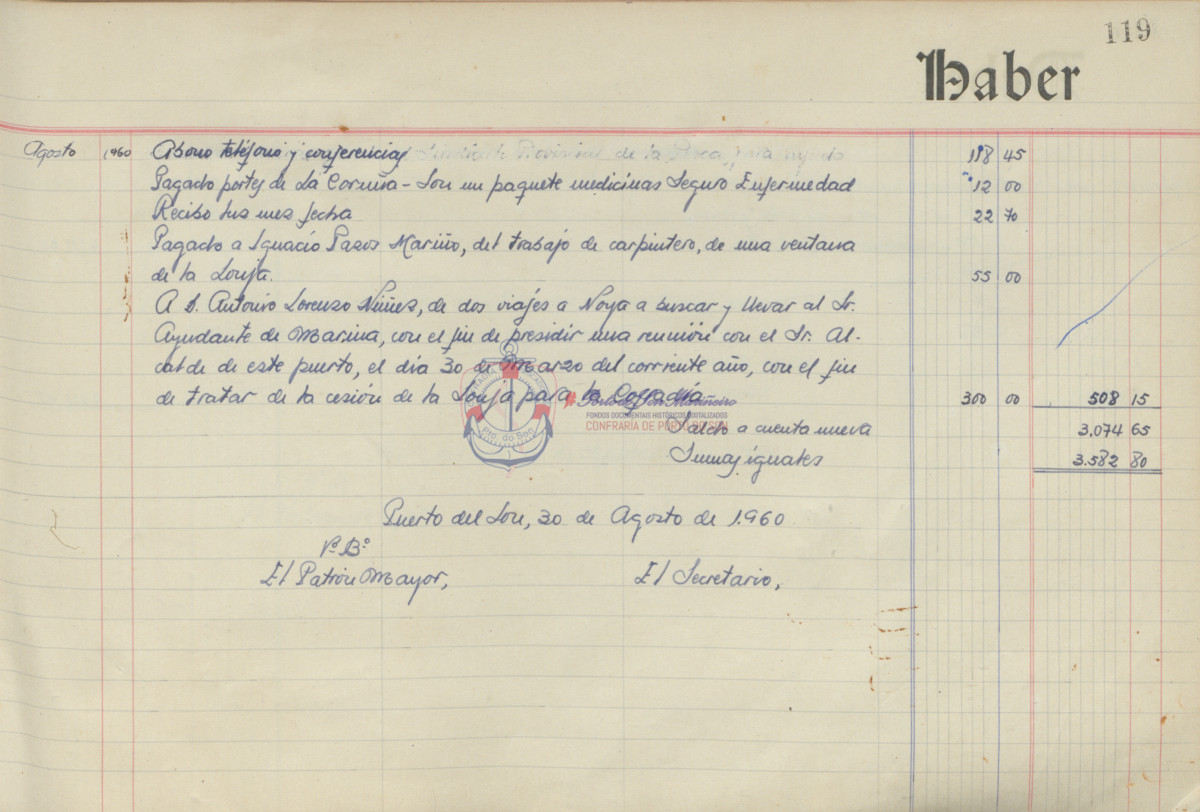 119
Haber
Agosto 1960 Abono teléfono y conferencias 118 45
Pagado portes de La Coruña - Son un paquete medicinas Seguro Enfermedad 12 00
Recibo luz mes fecha 22 70
Pagado a Ignacio Pazos Mariño, del trabajo de carpintero, de una ventana
de la Lonja. 55 00
A D. Antonio Lorenzo Núñez, de dos viajes a Noya a buscar y llevar al Sr.
Ayudante de Marina, con el fin de presidir una reunión con el Sr. Al-
calde de este puerto, el día 30 de Marzo del corriente año, con el fin
de tratar de la cesión de la Lonja para la Cofradía 300 00 508 15
FONDOS DOCUMENTAIS HISTÓRICOS DIXITALIZADOS
CONFRARÍA DE PORTO DO SON
Pto. do Son
Saldo a cuenta nueva 3.074 65
Sumas iguales 3.582 80
Puerto del Son, 30 de Agosto de 1.960
Vº Bº
El Patrón Mayor, El Secretario,